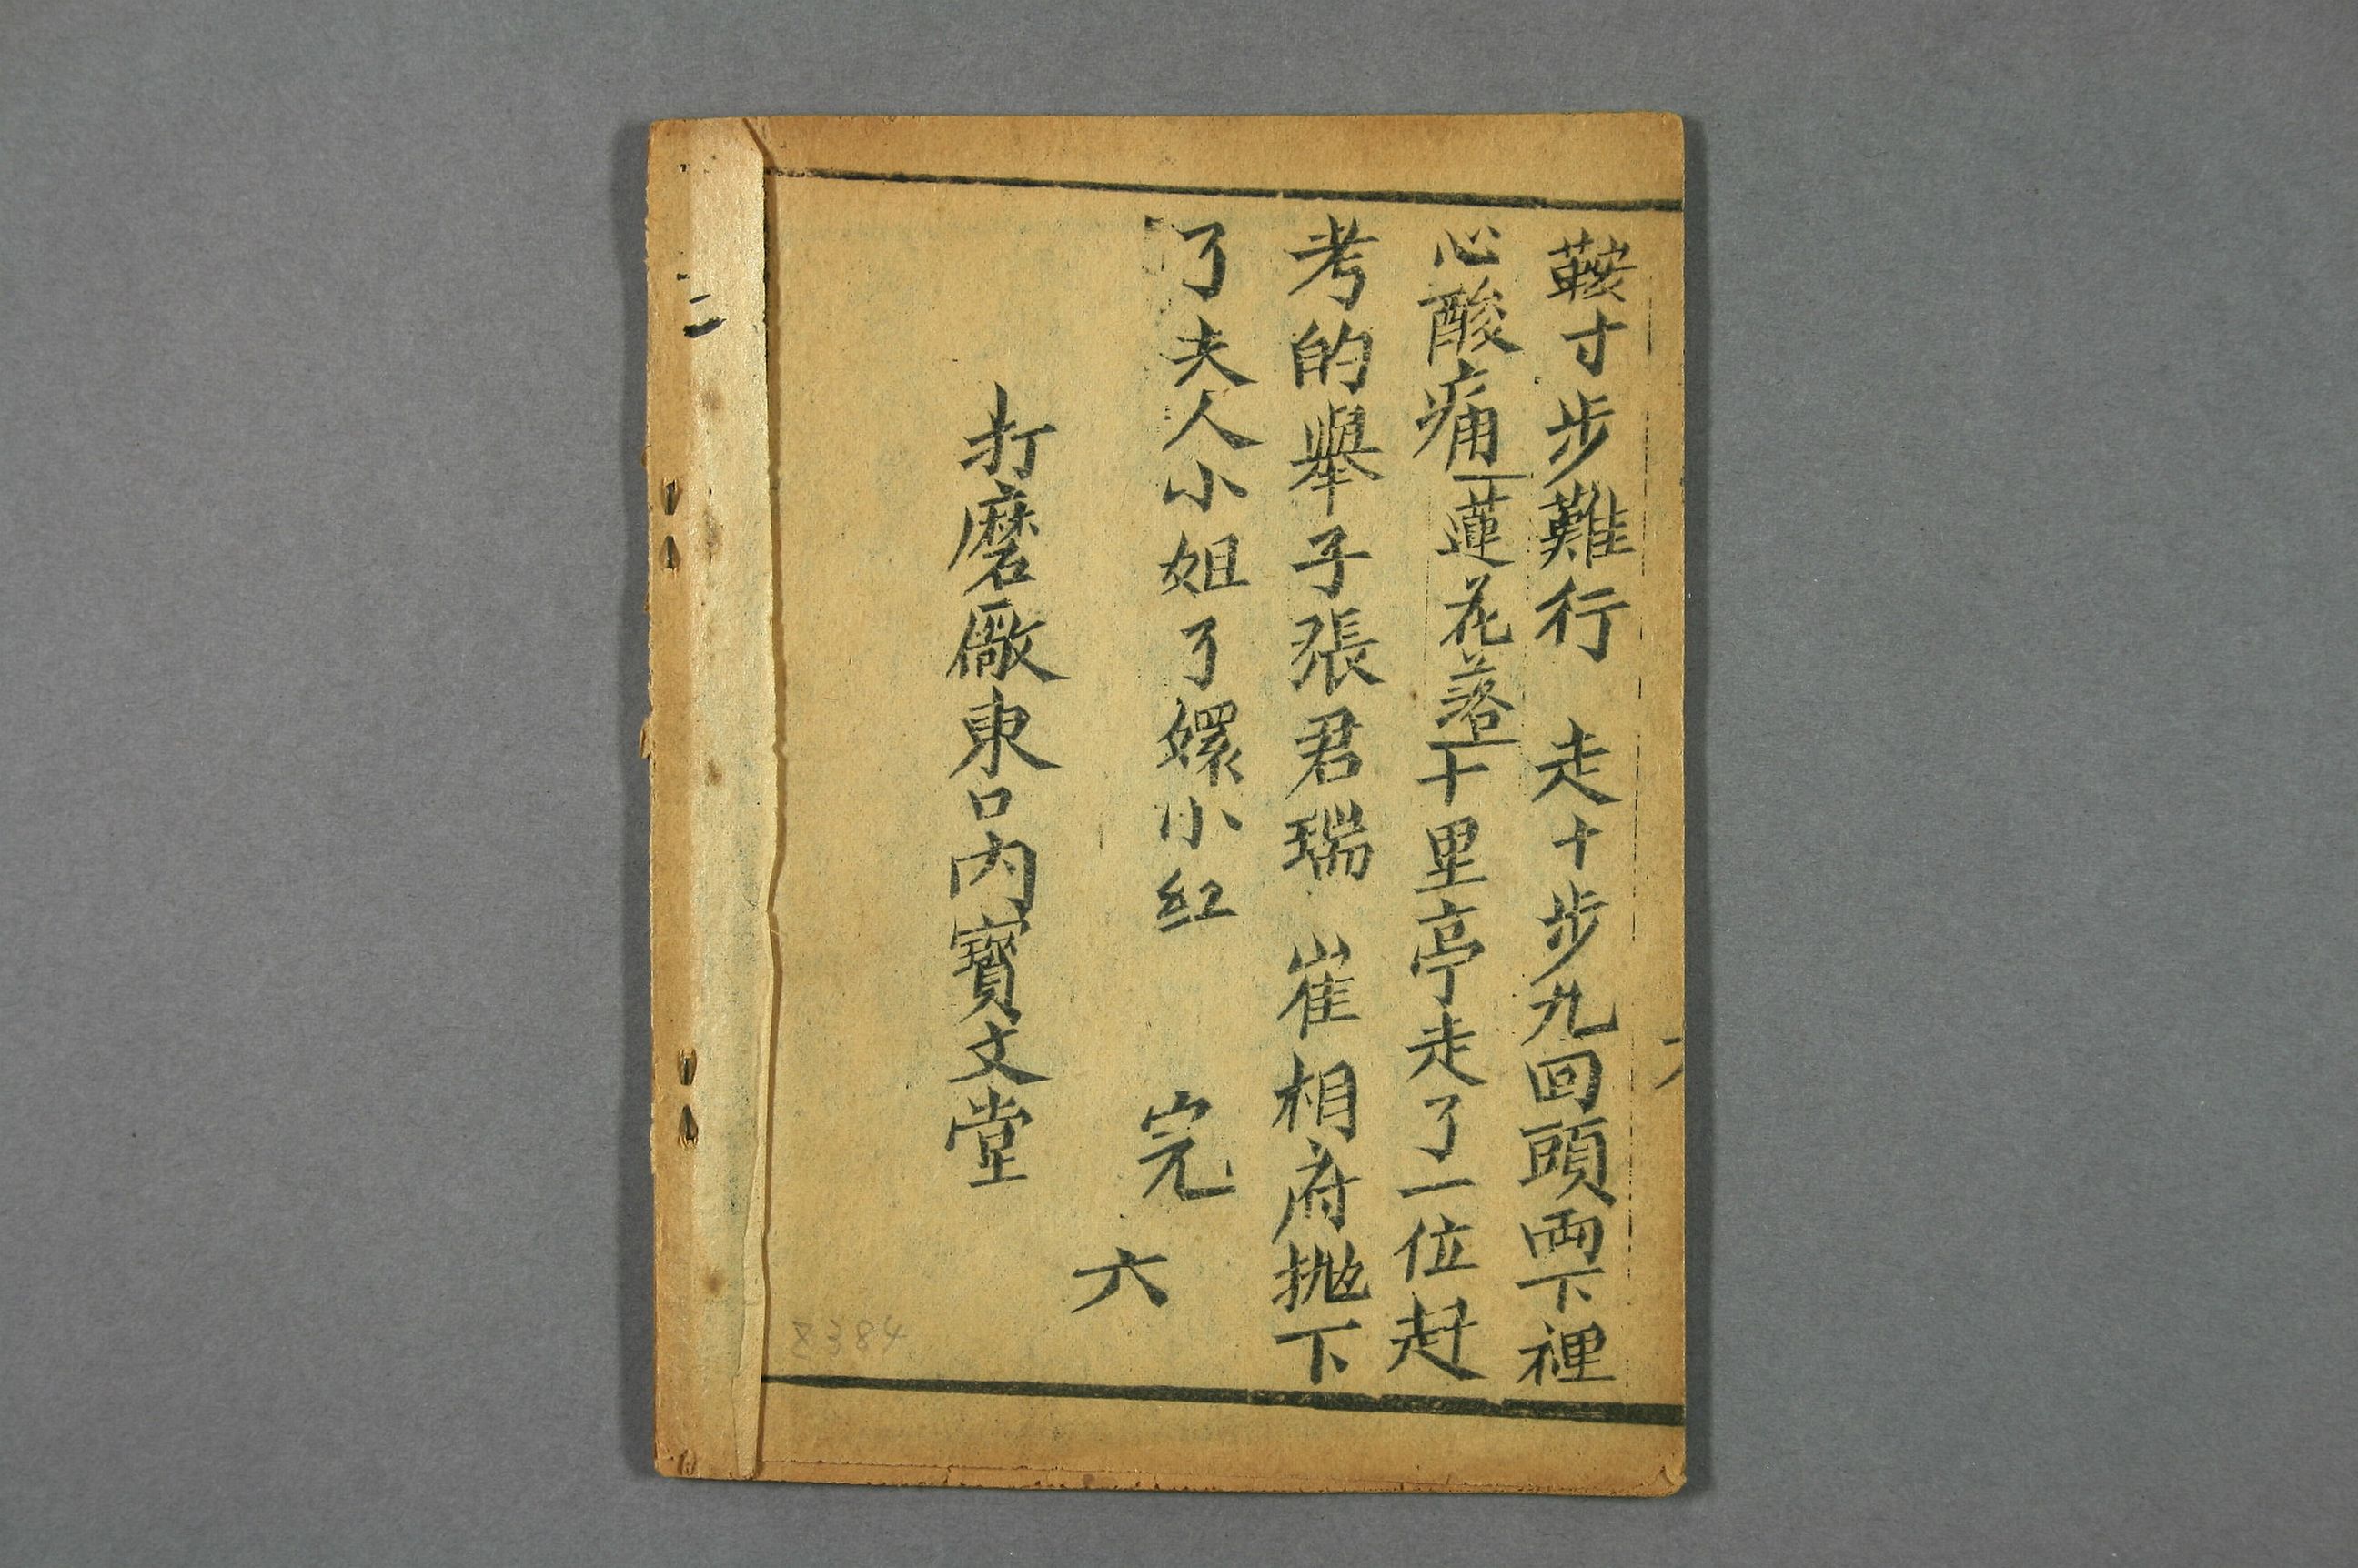 鞍寸步步難行 走十步九回頭両下裡
心酸痛蓮花落十里亭走了一位赶
考的舉子張君瑞 崔相府抛下
了夫人小姐了嬛小红 完
六
打磨厰東口内寶文堂
二
Z384